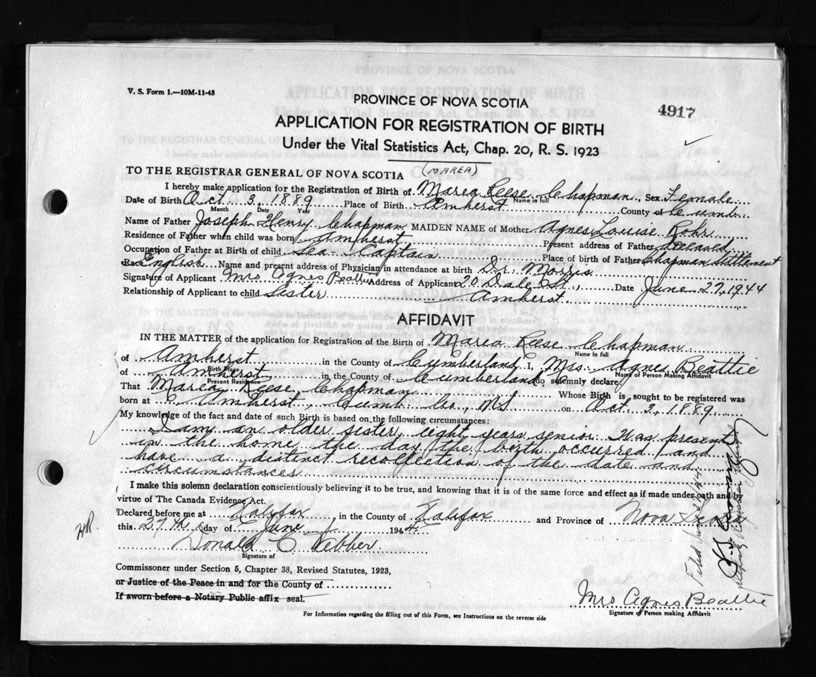 V. S. Form 1.—10M-11-43
PROVINCE OF NOVA SCOTIA
4917
APPLICATION FOR REGISTRATION OF BIRTH
Under the Vital Statistics Act, Chap. 20, R. S. 1923
TO THE REGISTRAR GENERAL OF NOVA SCOTIA (MAREA)
I hereby make application for the Registration of Birth of Marea Reese Chapman Sex Female
Name in full
Date of Birth Oct 3, 1889 Place of Birth Amherst County of Cumb.
Month Date Year
Name of Father Joseph Henry Chapman MAIDEN NAME of Mother Agnes Louise
Residence of Father when child was born Amherst Present address of Father
Occupation of Father at Birth of child Sea-Captain Place of birth of Father Chapman Settlement
Race English Name and present address of Physician in attendance at birth Dr. Morris
Signature of Applicant Mrs Agnes Beattie Address of Applicant 20 Dale St., Date June 27, 1944
Relationship of Applicant to child Sister Amherst
AFFIDAVIT
IN THE MATTER of the application for Registration of the Birth of Marea Reese Chapman
Name in full
of Amherst in the County of Cumberland I, Mrs. Agnes Beattie
Birth Place Name of Person Making Affidavit
of Amherst in the County of Cumberland do solemnly declare
Present Residence
That Marea Reese Chapman Whose Birth is sought to be registered was
born at Amherst, Cumb. Co., N.S on Oct 3, 1889
My knowledge of the fact and date of such Birth is based on the following circumstances:
I am an older sister, eight years senior. Was present
in the home the day the birth occurred and
have a distinct recollection of the date and
circumstances
I make this solemn declaration conscientiously believing it to be true, and knowing that it is of the same force and effect as if made under oath and by
virtue of The Canada Evidence Act.
Declared before me at Halifax, in the County of Halifax and Province of Nova Scotia
this 27th day of June 1944
Donald C Webber
Signature of
Commissioner under Section 5, Chapter 38, Revised Statutes, 1923,
or Justice of the Peace in and for the County of
If sworn before a Notary Public affix seal.
Mrs Agnes Beattie
Signature of Person making Affidavit
For Information regarding the filling out of this Form, see Instructions on the reverse side